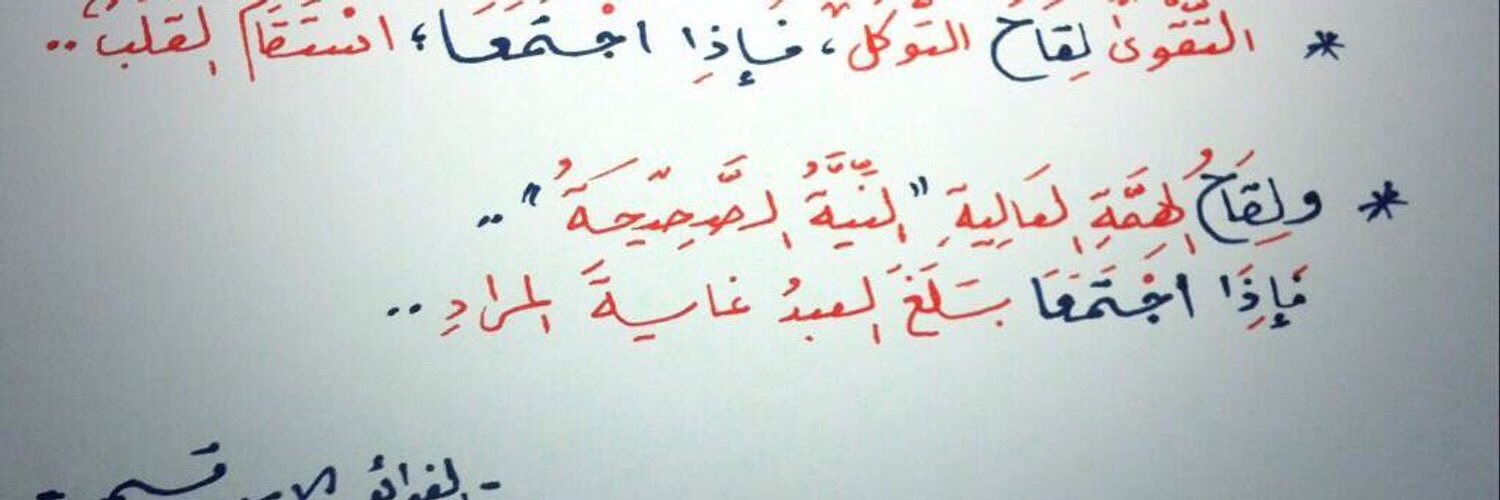 * التَّقْوىٰ لِقَاحُ التَّوَكُّلِ، فَإِذِا اجْتَمَعَا؛ اسْتَقَامَ القَلْبُ..
* ولِقَاحُ الهِمَّةِ العَالِيةِ "النِّيَّةُ الصَّحِيّحَةُ"..
فَإِذَا اجْتَمَعَا بَلَغَ العبدُ غايةَ المرادِ..
- الفوائد